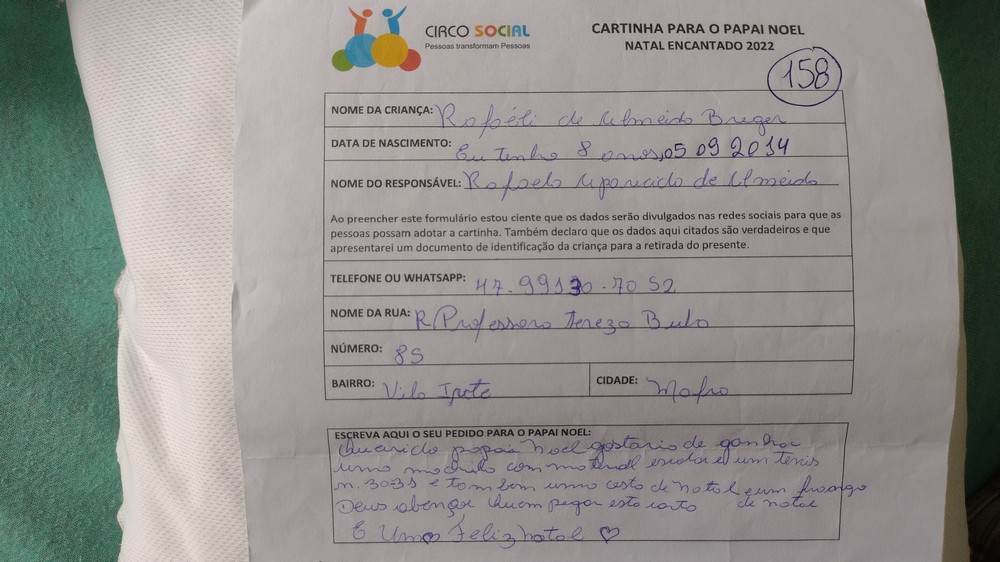 CIRCO SOCIAL
Pessoas transformam Pessoas
CARTINHA PARA O PAPAI NOEL
NATAL ENCANTADO 2022
158
NOME DA CRIANÇA: Rafaéli de Almeida Breger
DATA DE NASCIMENTO: Eu Tenho 8 anos, 05 09 2014
NOME DO RESPONSÁVEL: Rafaela Aparecida de Almeida
Ao preencher este formulário estou ciente que os dados serão divulgados nas redes sociais para que as
pessoas possam adotar a cartinha. Também declaro que os dados aqui citados são verdadeiros e que
apresentarei um documento de identificação da criança para a retirada do presente.
TELEFONE OU WHATSAPP: 47.99130.7052
NOME DA RUA: R Professora Tereza
NÚMERO: 85
BAIRRO: Vila Ipete CIDADE: Mafra
ESCREVA AQUI O SEU PEDIDO PARA O PAPAI NOEL:
Querido papai Noel gostaria de ganhar
uma mochila com material escolar e um tenis
n. 30 31 e tam bem uma cesta de natal e um frango
Deus abençoe Quem pegar esta carta de natal
E Uma Feliz natal ♡